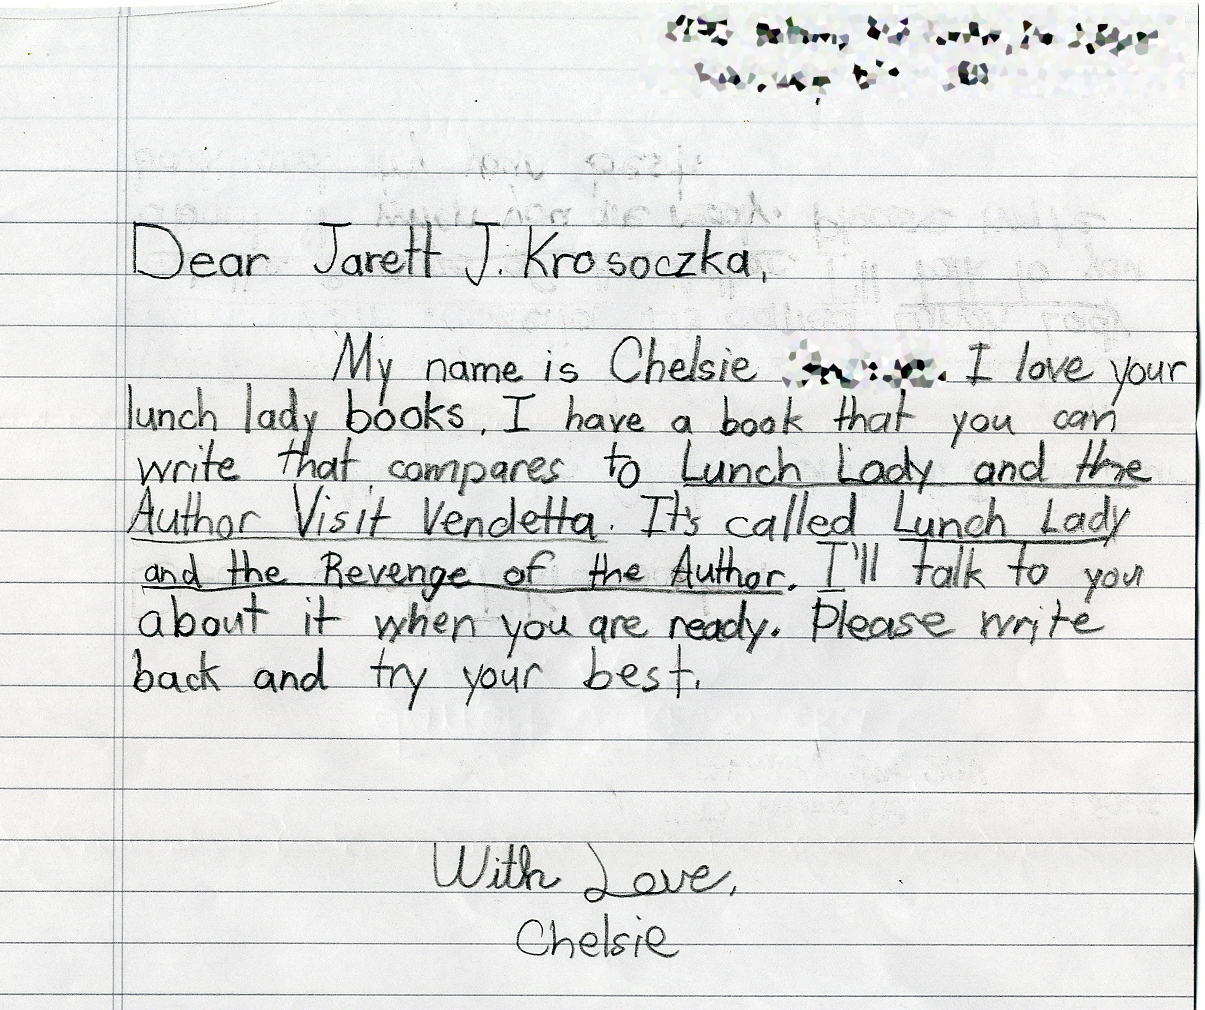 Dear Jarett J. Krosoczka,
My name is Chelsie . I love your
lunch lady books. I have a book that you can
write that compares to Lunch Lady and the
Author Visit Vendetta. It's called Lunch Lady
and the Revenge of the Author. I'll talk to you
about it when you are ready. Please write
back and try your best.
With Love,
Chelsie